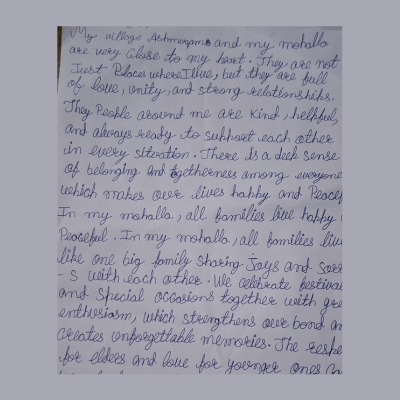 My village Ashmanpur and my mohalla
are very Close to my heart. They are not
Just Places where I live, but they are full
of love, unity, and strong relationships.
They People around me are kind, helpful,
and always ready to support each other
in every situation. There is a deep sense
of belonging and togetherness among everyone
which makes our lives happy and Peacef
In my mohalla, all families live happy
Peaceful. In my mohalla, all families live
like one big family sharing joys and sorr
-s with each other. We celebrate festival
and special occasions together with gre
enthusiasm, which strengthens our bond an
creates unforgettable memories. The respe
for elders and love for younger ones ca